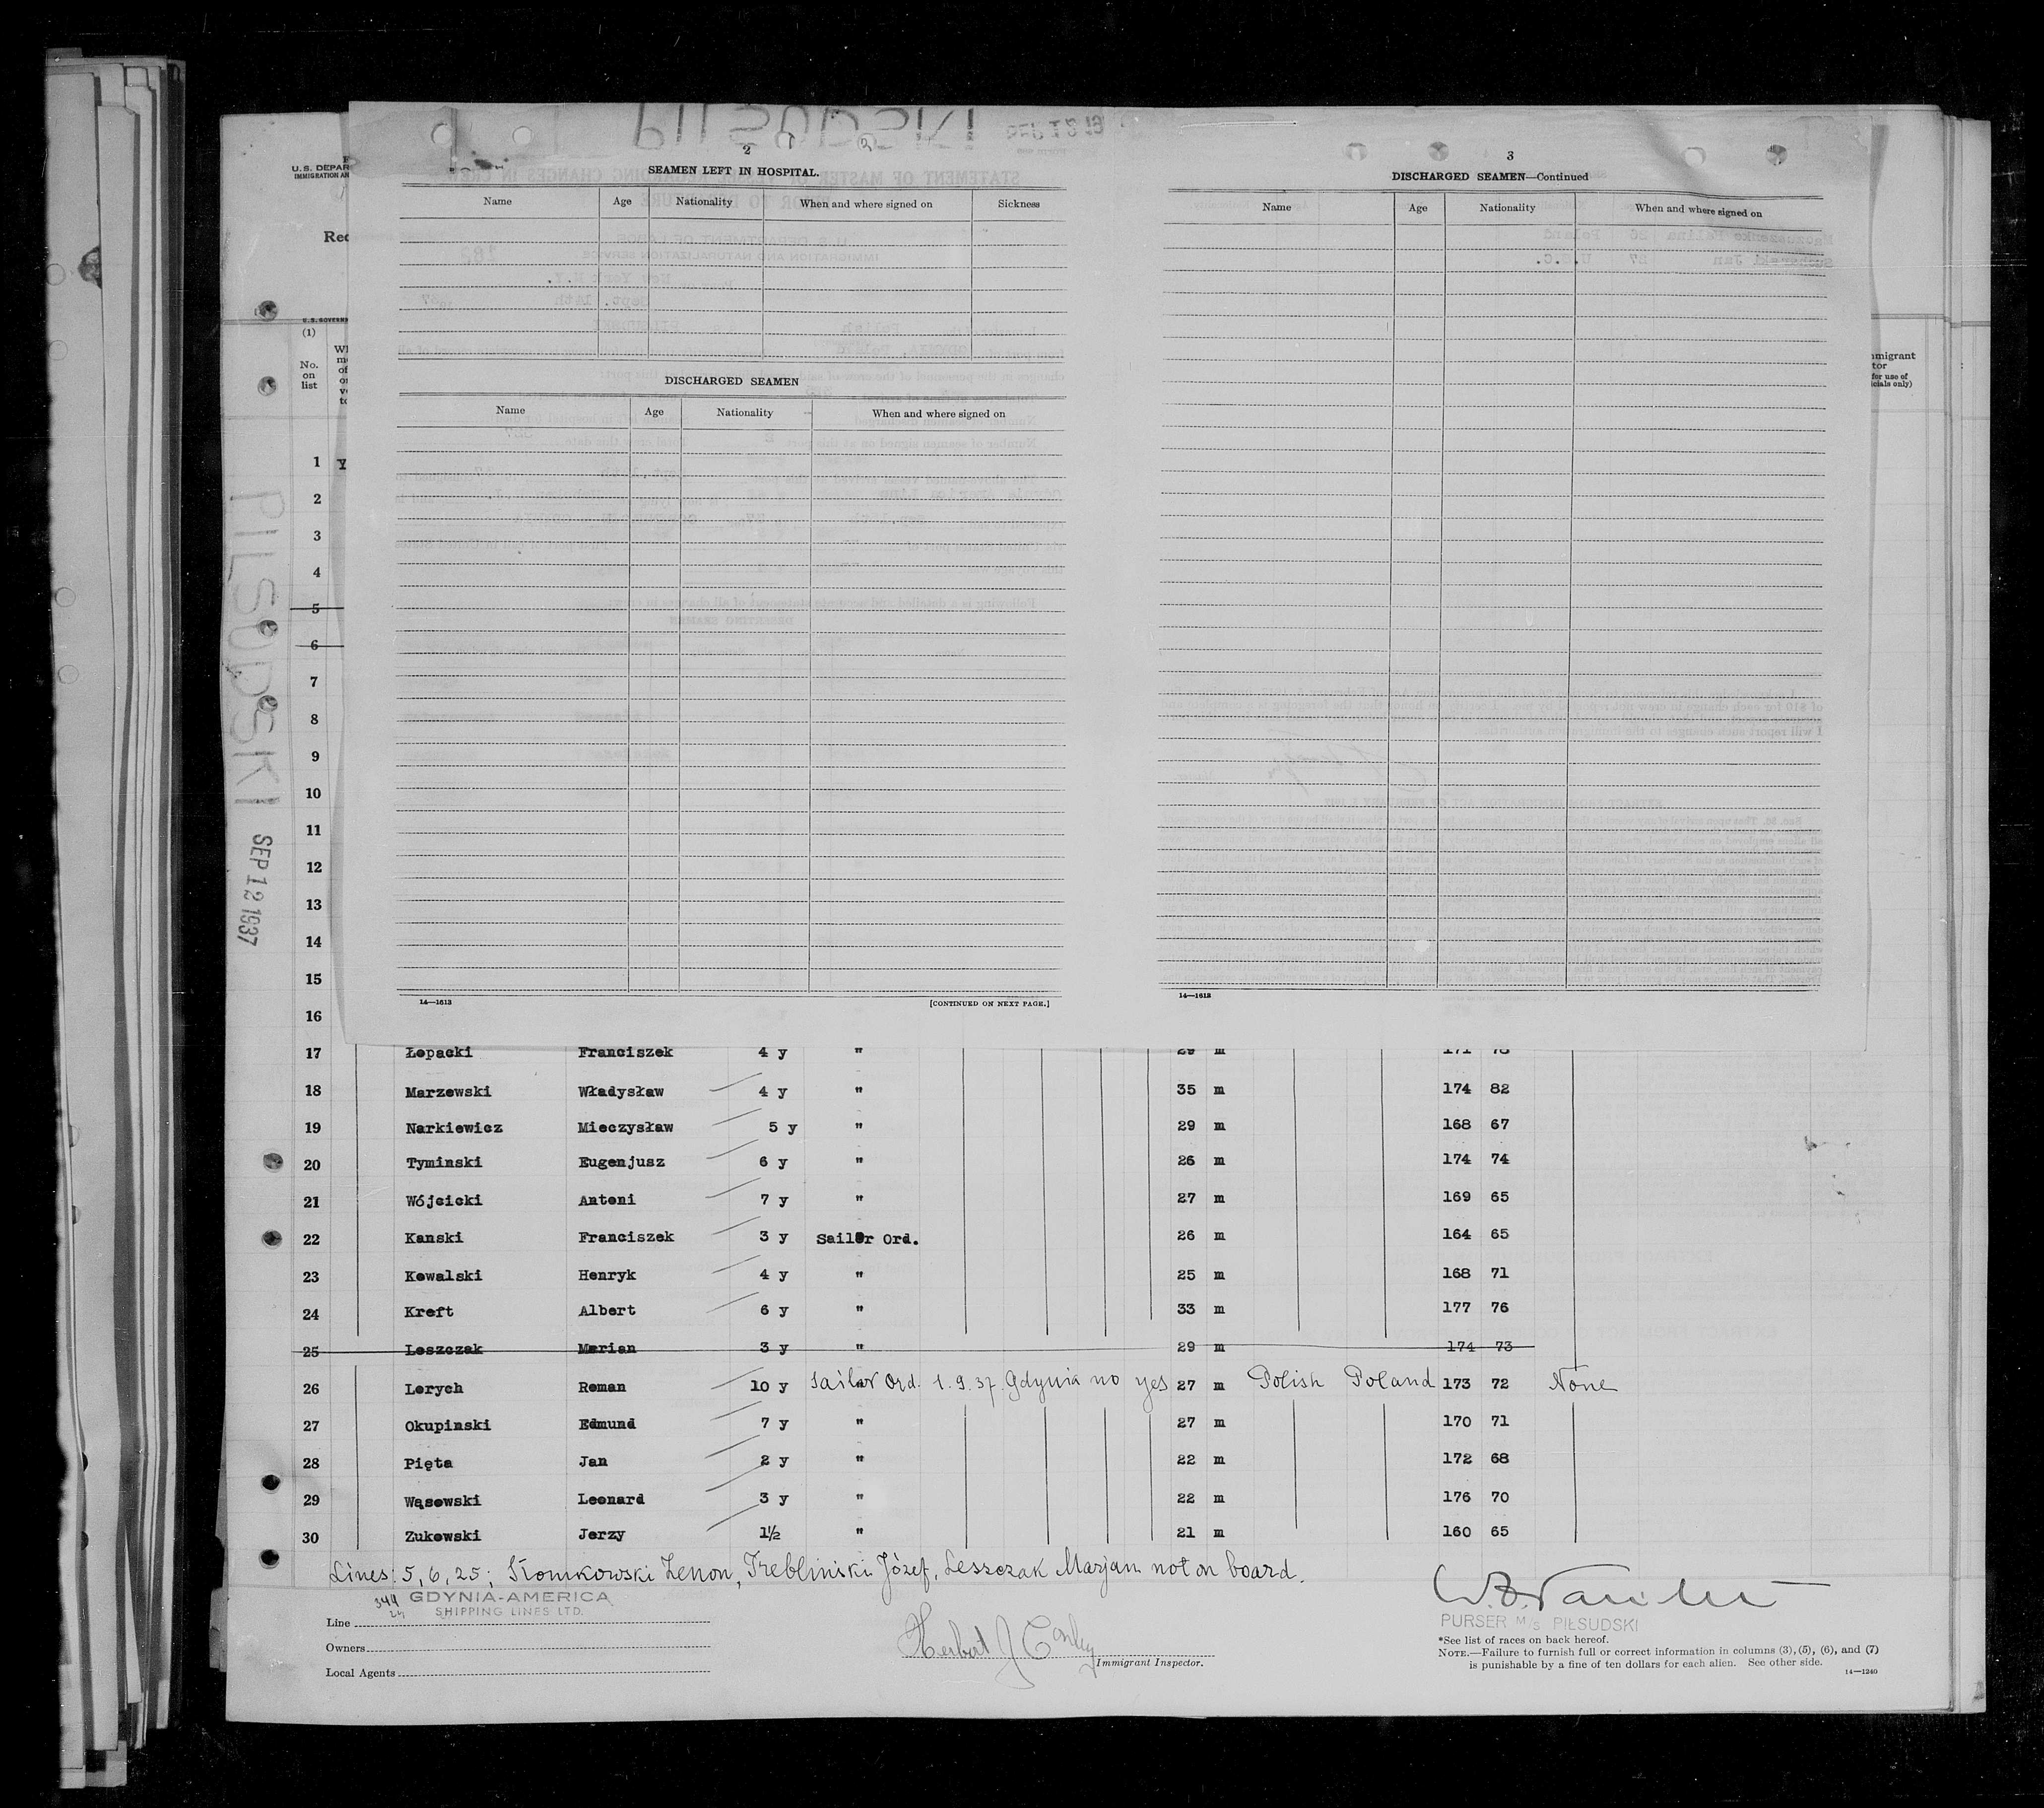 PIŁSUDSKI
U.S. DEPAR
IMMIGRATION AN
Rec
U.S. GOVERN
(1)
No.
on
list
2
SEAMEN LEFT IN HOSPITAL.
Name Age Nationality When and where signed on Sickness
DISCHARGED SEAMEN
Name Age Nationality When and where signed on
14—1613 [CONTINUED ON NEXT PAGE.]
3
DISCHARGED SEAMEN—Continued
Name Age Nationality When and where signed on
14—1613
mmigrant
tor
for use of
icials only)
PILSUDSKI SEP 12 1937
1 Y
2
3
4
5
6
7
8
9
10
11
12
13
14
15
16
17 Łopacki Franciszek 4 y " 29 m 171 78
18 Marzewski Władysław 4 y " 35 m 174 82
19 Narkiewicz Mieczysław 5 y " 29 m 168 67
20 Tyminski Eugenjusz 6 y " 26 m 174 74
21 Wójcicki Antoni 7 y " 27 m 169 65
22 Kanski Franciszek 3 y Sailor Ord. 26 m 164 65
23 Kowalski Henryk 4 y " 25 m 168 71
24 Kreft Albert 6 y " 33 m 177 76
25 Leszczak Marian 3 y " 29 m 174 73
26 Lerych Roman 10 y Sailor Ord. 1.9.37. Gdynia no yes 27 m Polish Poland 173 72 None
27 Okupinski Edmund 7 y " 27 m 170 71
28 Pięta Jan 2 y " 22 m 172 68
29 Wąsowski Leonard 3 y " 22 m 176 70
30 Zukowski Jerzy 1½ " 21 m 160 65
Lines: 5, 6, 25; Słomkowski Zenon, Trebliński Józef, Leszczak Marjan not on board.
344
24
GDYNIA-AMERICA
SHIPPING LINES LTD.
Line
Owners
Local Agents
Herbert J Conley
Immigrant Inspector.
PURSER M/S PIŁSUDSKI
*See list of races on back hereof.
NOTE.—Failure to furnish full or correct information in columns (3), (5), (6), and (7)
is punishable by a fine of ten dollars for each alien. See other side.
14—1240